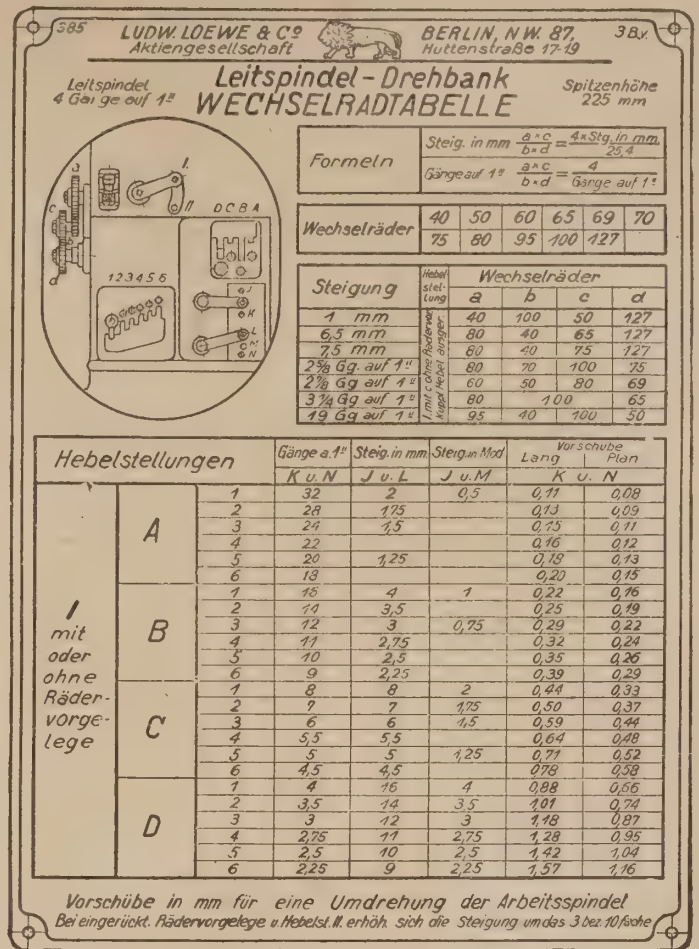 S85 LUDW. LOEWE & Cº BERLIN, N.W. 87, 3 B.y.
Aktiengesellschaft Huttenstraße 17-19
Leitspindel 4 Gänge auf 1"
Leitspindel-Drehbank
WECHSELRADTABELLE
Spitzenhöhe 225 mm
a
c
d
I.
II
D C B A
1 2 3 4 5 6
J
K
L
M
N
Formeln
Steig. in mm a×c / b×d = 4×Stg. in mm / 25,4
Gänge auf 1" a×c / b×d = 4 / Gänge auf 1"
Wechselräder 40 50 60 65 69 70
75 80 95 100 127
Steigung Hebelstellung Wechselräder
a b c d
I. mit o. ohne Rädervor. Kuppl. Hebel ausger.
1 mm 40 100 50 127
6,5 mm 80 40 65 127
7,5 mm 80 40 75 127
2⅝ Gg. auf 1" 80 70 100 75
2⅞ Gg auf 1" 60 50 80 69
3¼ Gg auf 1" 80 100 65
19 Gg auf 1" 95 40 100 50
Hebelstellungen Gänge a. 1" Steig. in mm Steig. in Mod Vorschübe
Lang Plan
K u. N J u. L J u. M K u. N
I mit oder ohne Rädervorgelege
A
1 32 2 0,5 0,11 0,08
2 28 1,75 0,13 0,09
3 24 1,5 0,15 0,11
4 22 0,16 0,12
5 20 1,25 0,18 0,13
6 18 0,20 0,15
B
1 16 4 1 0,22 0,16
2 14 3,5 0,25 0,19
3 12 3 0,75 0,29 0,22
4 11 2,75 0,32 0,24
5 10 2,5 0,35 0,26
6 9 2,25 0,39 0,29
C
1 8 8 2 0,44 0,33
2 7 7 1,75 0,50 0,37
3 6 6 1,5 0,59 0,44
4 5,5 5,5 0,64 0,48
5 5 5 1,25 0,71 0,52
6 4,5 4,5 0,78 0,58
D
1 4 16 4 0,88 0,66
2 3,5 14 3,5 1,01 0,74
3 3 12 3 1,18 0,87
4 2,75 11 2,75 1,28 0,95
5 2,5 10 2,5 1,42 1,04
6 2,25 9 2,25 1,57 1,16
Vorschübe in mm für eine Umdrehung der Arbeitsspindel
Bei eingerückt. Rädervorgelege u. Hebelst. II. erhöh. sich die Steigung um das 3 bez. 10fache